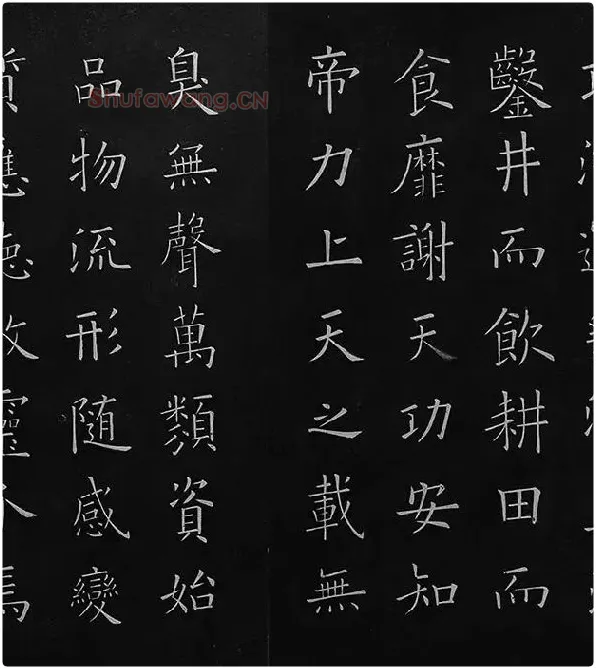 鑿井而飲耕田而
食靡謝天功安知
帝力上天之載無
臭無聲萬類資始
品物流形隨感變
Shufawang.CN